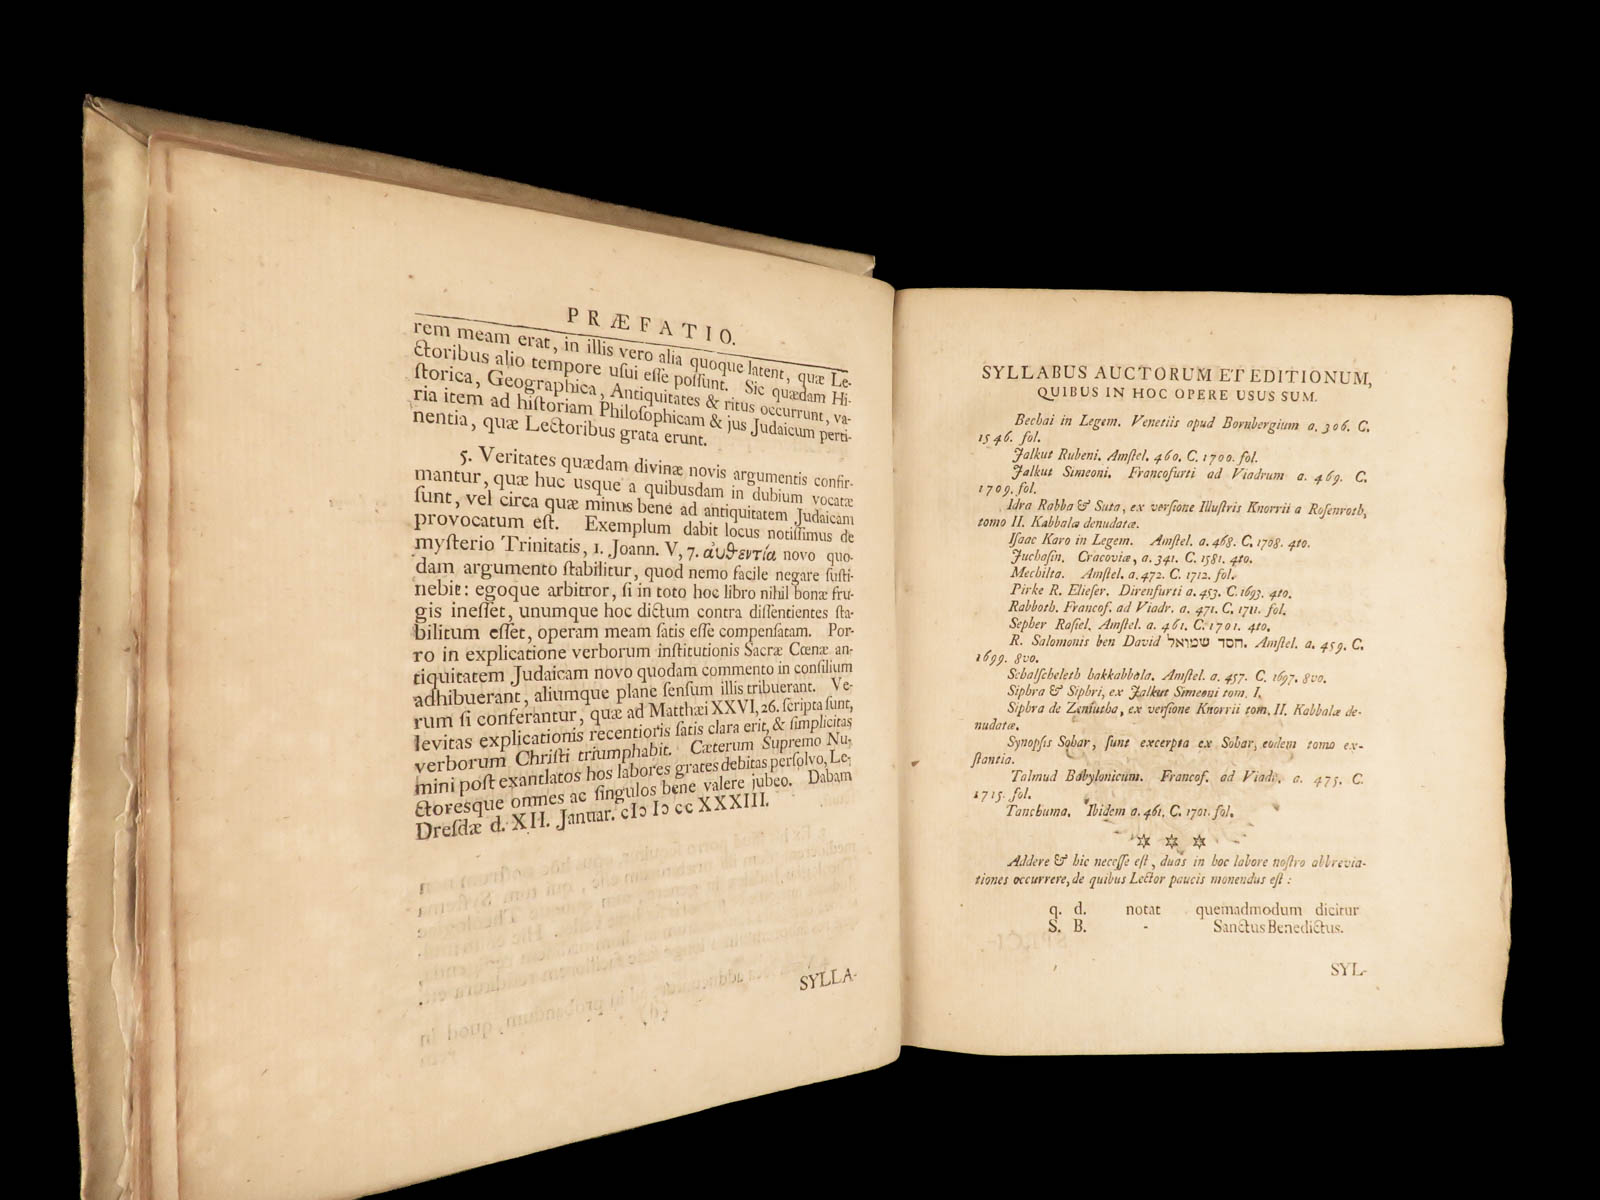 PRÆFATIO.
rem meam erat, in illis vero alia quoque latent, quæ Le-
ctoribus alio tempore uſui eſſe poſſunt. Sic quædam Hi-
ſtorica, Geographica, Antiquitates & ritus occurrunt, va-
ria item ad hiſtoriam Philoſophicam & jus Judaicum perti-
nentia, quæ Lectoribus grata erunt.
5. Veritates quædam divinæ novis argumentis confir-
mantur, quæ huc usque a quibusdam in dubium vocatæ
ſunt, vel circa quæ minus bene ad antiquitatem Judaicam
provocatum eſt. Exemplum dabit locus notiſſimus de
myſterio Trinitatis, 1. Joann. V, 7. αὐθεντία novo quo-
dam argumento ſtabilitur, quod nemo facile negare ſuſti-
nebit: egoque arbitror, ſi in toto hoc libro nihil bonæ fru-
gis ineſſet, unumque hoc dictum contra diſſentientes ſta-
bilitum eſſet, operam meam ſatis eſſe compenſatam. Por-
ro in explicatione verborum inſtitutionis Sacræ Cœnæ an-
tiquitatem Judaicam novo quodam commento in conſilium
adhibuerant, aliumque plane ſenſum illis tribuerant. Ve-
rum ſi conferantur, quæ ad Matthæi XXVI, 26. ſcripta ſunt,
levitas explicationis recentioris ſatis clara erit, & ſimplicitas
verborum Chriſti triumphabit. Cæterum Supremo Nu-
mini poſt exantlatos hos labores grates debitas perſolvo, Le-
ctoresque omnes ac ſingulos bene valere jubeo. Dabam
Dresdæ d. XII. Januar. cIɔ Iɔ cc XXXIII.
SYLLA-
SYLLABUS AUCTORUM ET EDITIONUM,
QUIBUS IN HOC OPERE USUS SUM.
Bechai in Legem. Venetiis apud Bornbergium a. 306. C.
1546. fol.
Jalkut Rubeni. Amſtel. 460. C. 1700. fol.
Jalkut Simeoni. Francofurti ad Viadrum a. 469. C.
1709. fol.
Idra Rabba & Suta, ex verſione Illuſtris Knorrii a Roſenroth,
tomo II. Kabbalæ denudatæ.
Iſaac Karo in Legem. Amſtel. a. 468. C. 1708. 4to.
Juchaſin. Cracoviæ, a. 341. C. 1581. 4to.
Mechilta. Amſtel. a. 472. C. 1712. fol.
Pirke R. Elieſer. Direnfurti a. 453. C. 1693. 4to.
Rabboth. Francof. ad Viadr. a. 471. C. 1711. fol.
Sepher Raſiel. Amſtel. a. 461. C. 1701. 4to.
R. Salomonis ben David חסד שמואל. Amſtel. a. 459. C.
1699. 8vo.
Schalſcheleth hakkabbala. Amſtel. a. 457. C. 1697. 8vo.
Siphra & Siphri, ex Jalkut Simeoni tom. I.
Siphra de Zeniutha, ex verſione Knorrii tom. II. Kabbalæ de-
nudatæ.
Synopſis Sohar, ſunt excerpta ex Sohar, eodem tomo ex-
ſtantia.
Talmud Babylonicum. Francof. ad Viadr. a. 475. C.
1715. fol.
Tanchuma. Ibidem a. 461. C. 1701. fol.
Addere & hic neceſſe eſt, duas in hoc labore noſtro abbrevia-
tiones occurrere, de quibus Lector paucis monendus eſt:
q. d. notat quemadmodum dicitur
S. B. - Sanctus Benedictus.
SYL-